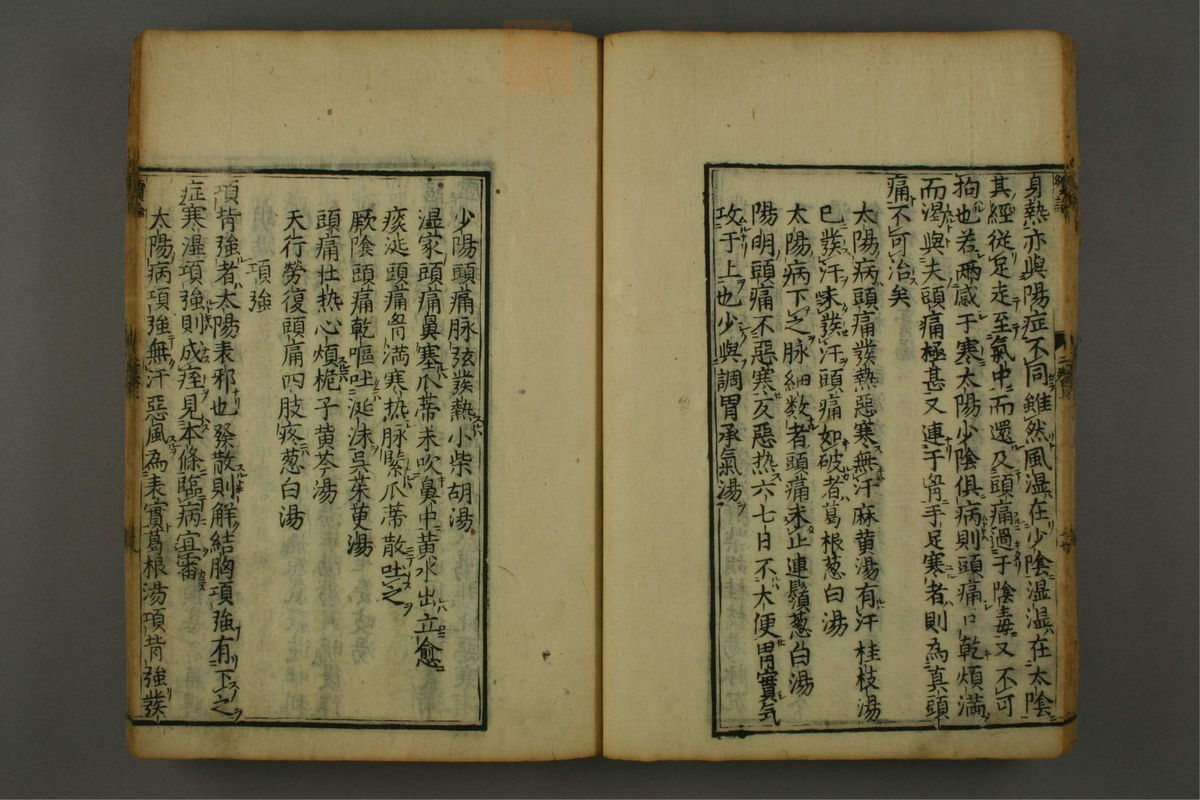 身熱亦與陽症不同雖然風温在少陰湿温在太陰
其經從足走至氣中而還及頭痛過于陰毒又不可
拘也若两感于寒太陽少陰俱病則頭痛口乾煩満
而渇與夫頭痛極甚又連于脳手足寒者則為真頭
痛不可治矣
太陽病頭痛發熱惡寒無汗麻黄湯有汗桂枝湯
已發汗未發汗頭痛如破者葛根葱白湯
太陽病下之脉細数者頭痛未止連鬚葱白湯
陽明頭痛不惡寒反惡热六七日不大便胃實気
攻于上也少與調胃承氣湯
少陽頭痛脉弦發熱小柴胡湯
湿家頭痛鼻塞爪蒂末吹鼻中黄水出立愈
痰涎頭痛胷満寒热脉緊爪蒂散吐之
厥陰頭痛乾嘔吐涎沫吳茱萸湯
頭痛壮热心煩梔子黄芩湯
天行勞復頭痛四肢疼葱白湯
項強
項背強者太陽表邪也發散則解結胸項強有下之
症寒湿項強則成痓見本條臨病宜審
太陽病項強無汗惡風為表實葛根湯項背強發